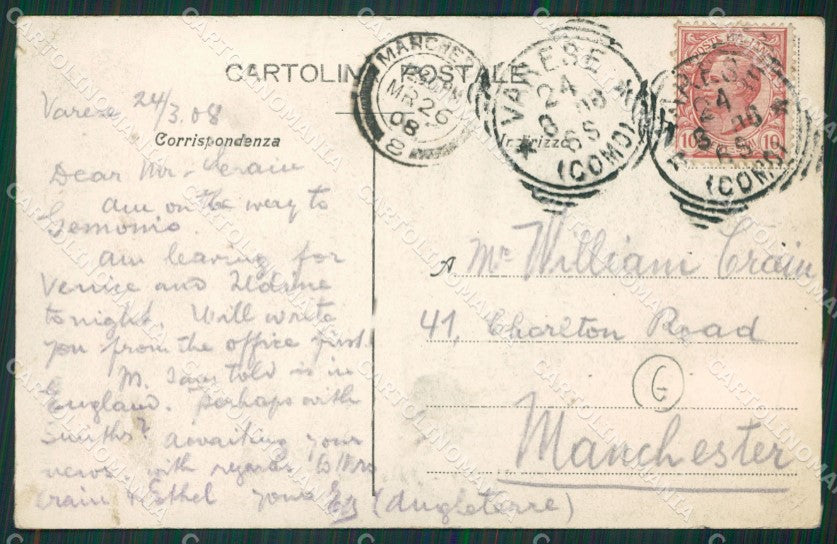 CARTOLINA POSTALE
MANCHE
MR 26
08
8
VARESE
24
3 08
(COMO)
24
08
(COMO)
10
10
Varese 24/3.08
Corrispondenza
Indirizzo
Dear Mr. Crain
am on the way to
Gemonio.
am leaving for
Venice and Udine
tonight. Will write
you from the office first
M. told is in
England. Perhaps with
Smiths? awaiting your
news with regards to Mrs
Crain & Ethel yours
A Mr William Crain
41, Charlton Road
G
Manchester
(Angleterre)
CARTOLINOMANIA